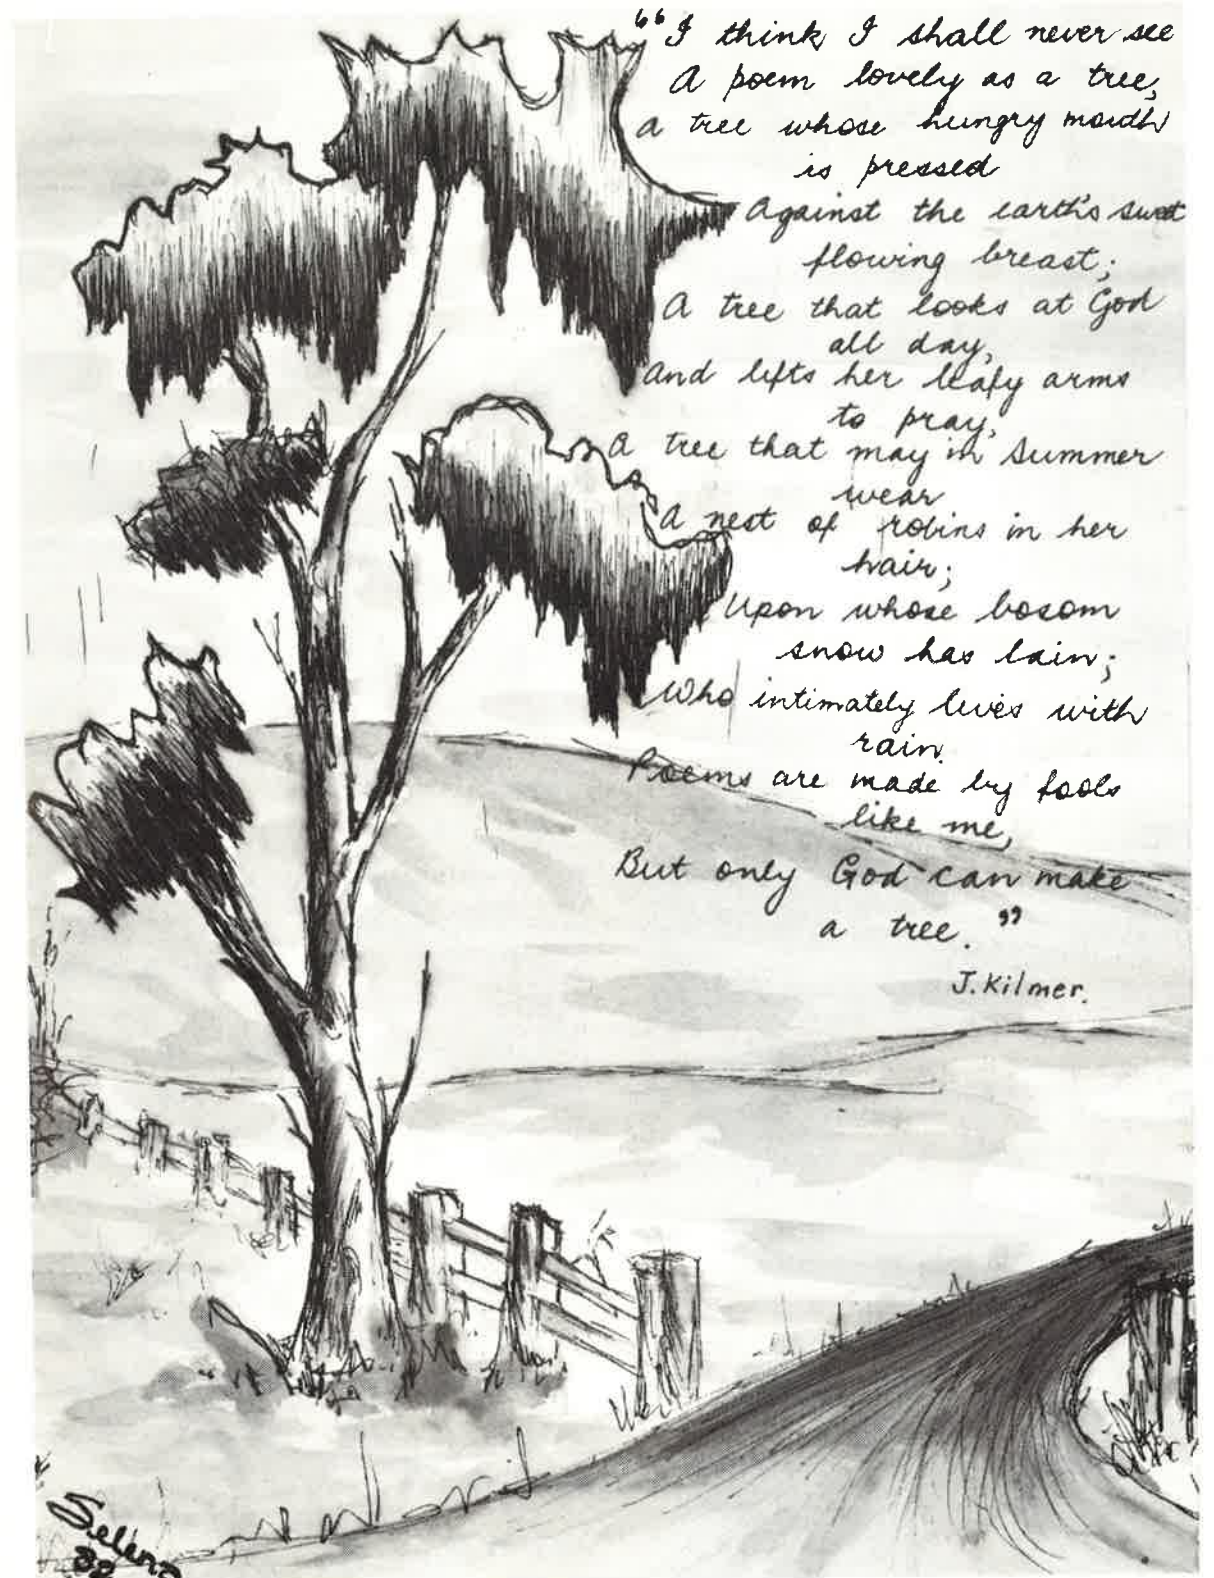 “I think I shall never see
A poem lovely as a tree,
A tree whose hungry mouth
is pressed
Against the earth's sweet
flowing breast;
A tree that looks at God
all day,
And lifts her leafy arms
to pray,
A tree that may in Summer
wear
A nest of robins in her
hair;
Upon whose bosom
snow has lain;
Who intimately lives with
rain.
Poems are made by fools
like me,
But only God can make
a tree.”
J. Kilmer.
Selena